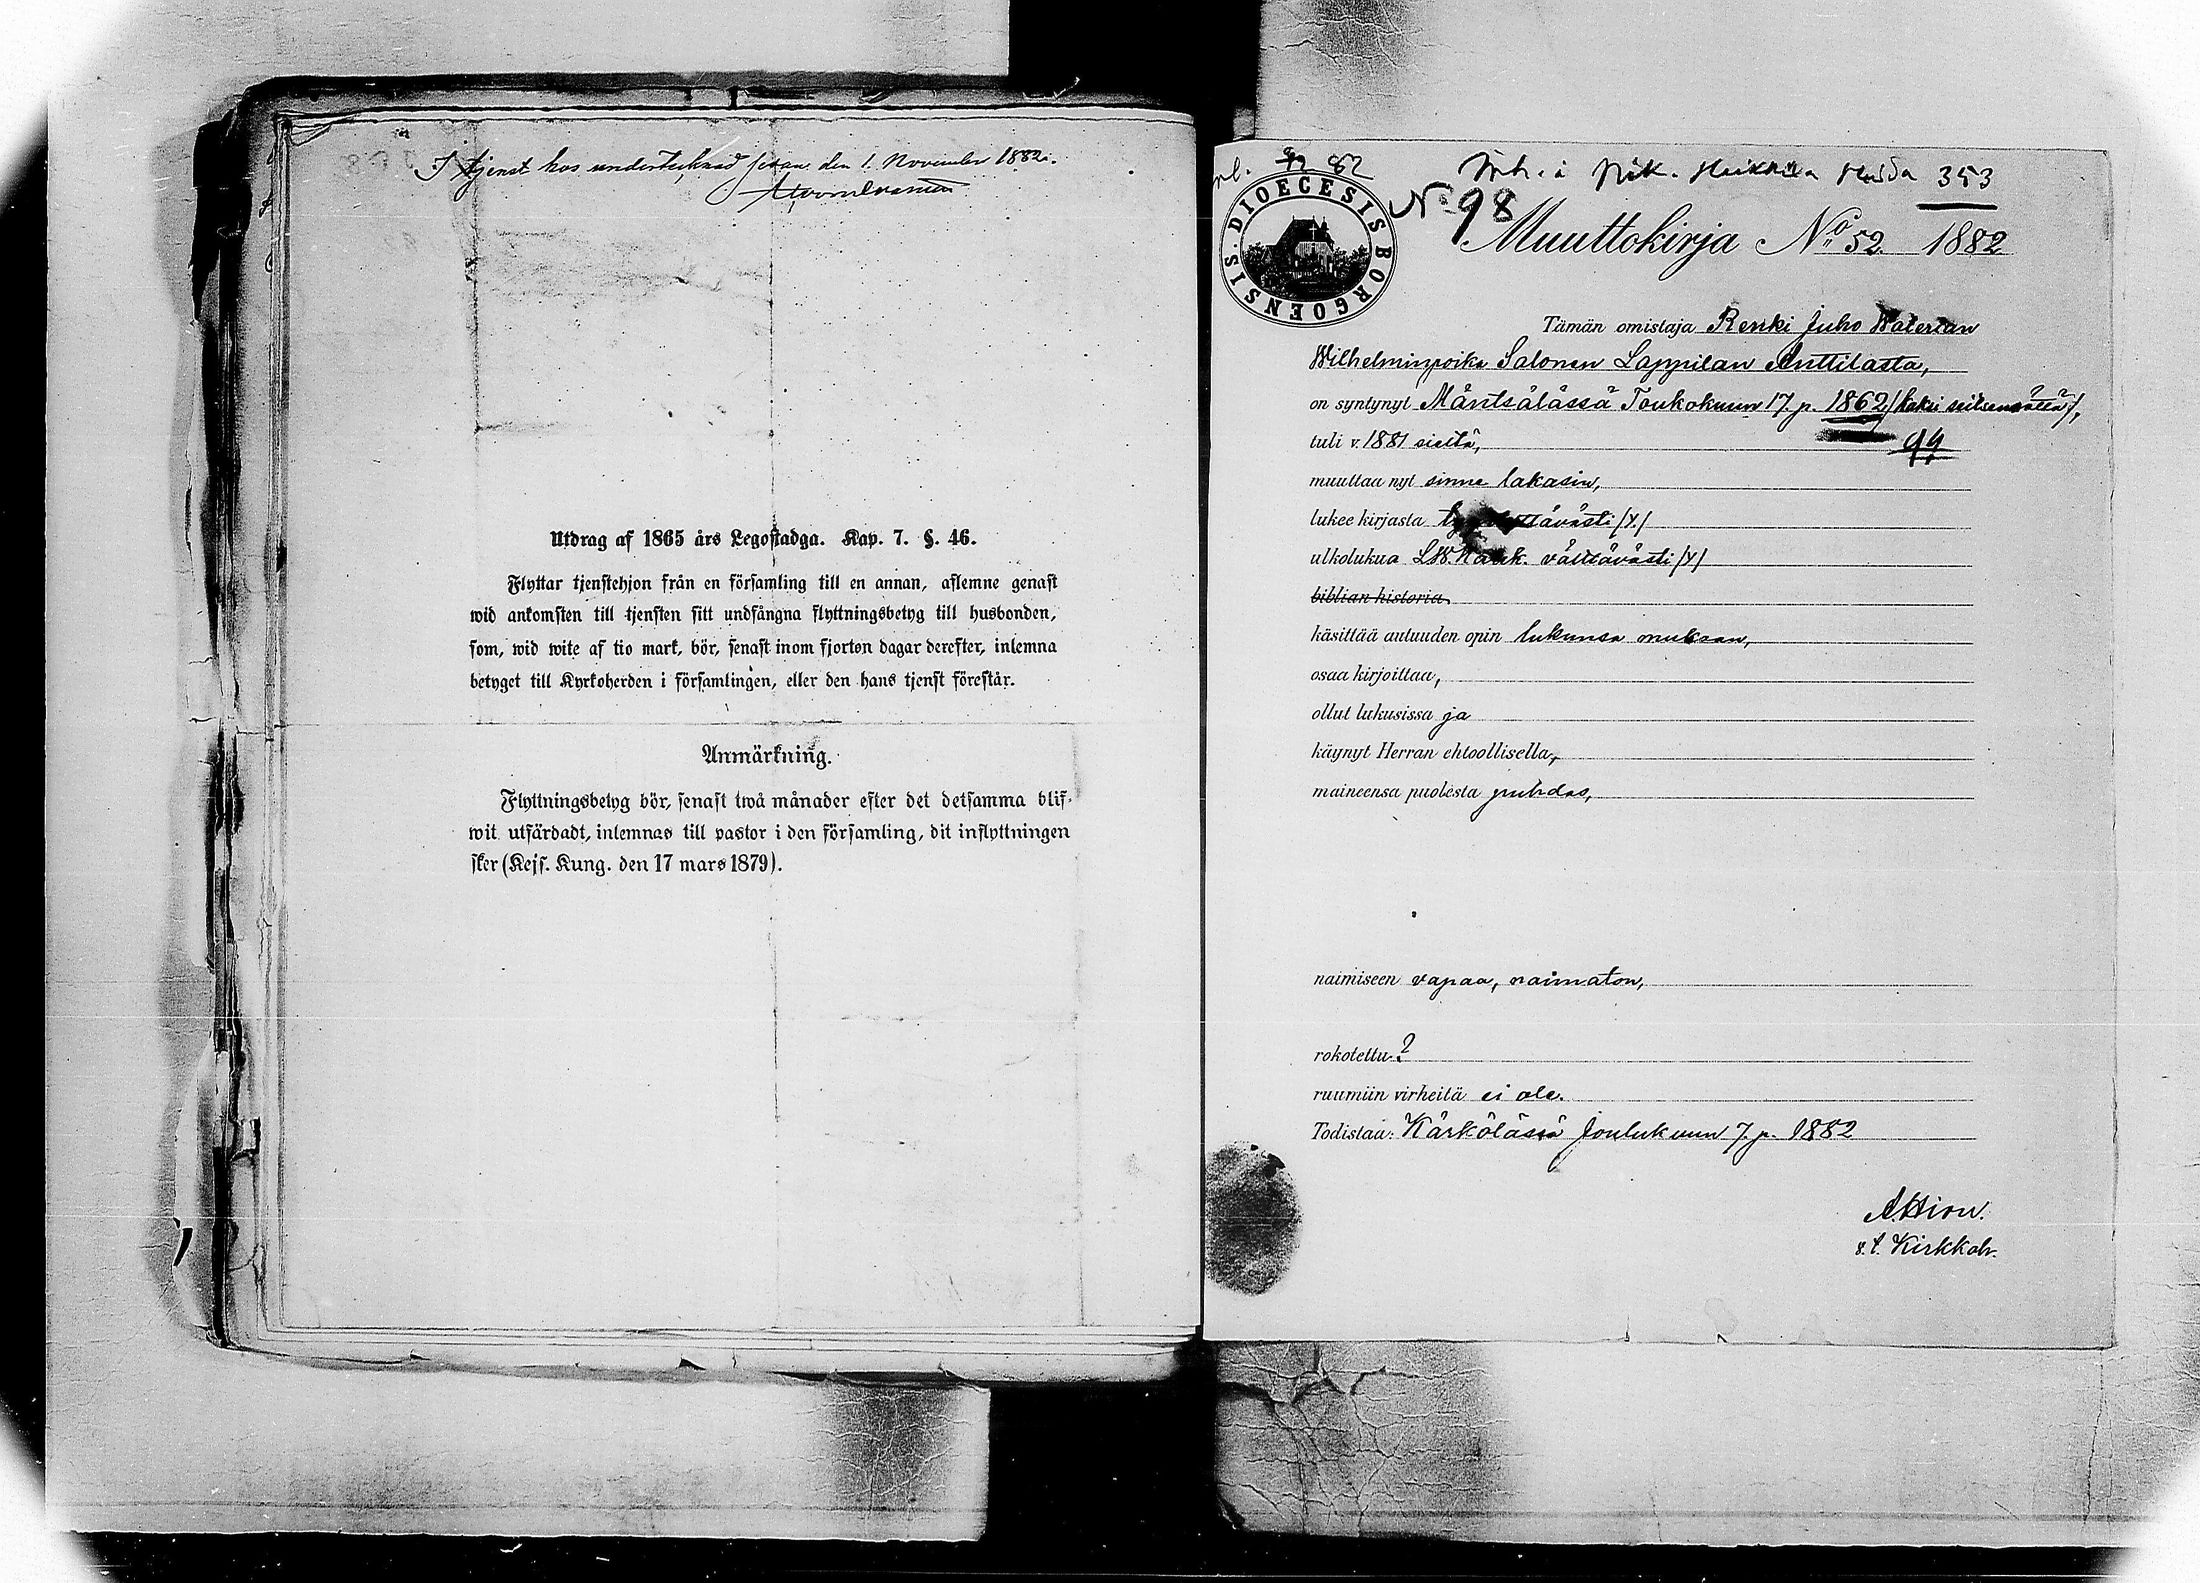 I tjenst hos undertecknad sedan den 1. November 1882.
Utdrag af 1865 års Legostadga. Kap. 7. §. 46.
Flyttar tjenstehjon från en församling till en annan, aflemne genast
wid ankomsten till tjensten sitt undfångna flyttningsbetyg till husbonden,
som, wid wite af tio mark, bör, senast inom fjorton dagar derefter, inlemna
betyget till Kyrkoherden i församlingen, eller den hans tjenst förestår.
Anmärkning.
Flyttningsbetyg bör, senast twå månader efter det detsamma blif-
wit utfärdadt, inlemnas till pastor i den församling, dit inflyttningen
sker (Kejs. Kung. den 17 mars 1879).
82
353
No 98
DIOECESIS BORGOENSIS
Muuttokirja No 52. 1882
Tämän omistaja Renki Juho Walerian
Wilhelminpoika Salonen Lappilan Anttilasta,
on syntynyt Mäntsälässä Toukokuun 17. p. 1862 /: kaksi seitsemättä :/,
tuli v. 1881 sieltä,
94
muuttaa nyt sinne takasin,
lukee kirjasta
ulkolukua välttävästi /y/
biblian historia
käsittää autuuden opin lukunsa mukaan,
osaa kirjoittaa,
ollut lukusissa ja
käynyt Herran ehtoollisella,
maineensa puolesta puhdas,
naimiseen vapaa, naimaton,
rokotettu ?
ruumiin virheitä ei ole.
Todistaa: Kärkölässä Joulukuun 7. p. 1882
A. Hirn.
v. t. Kirkkoh.